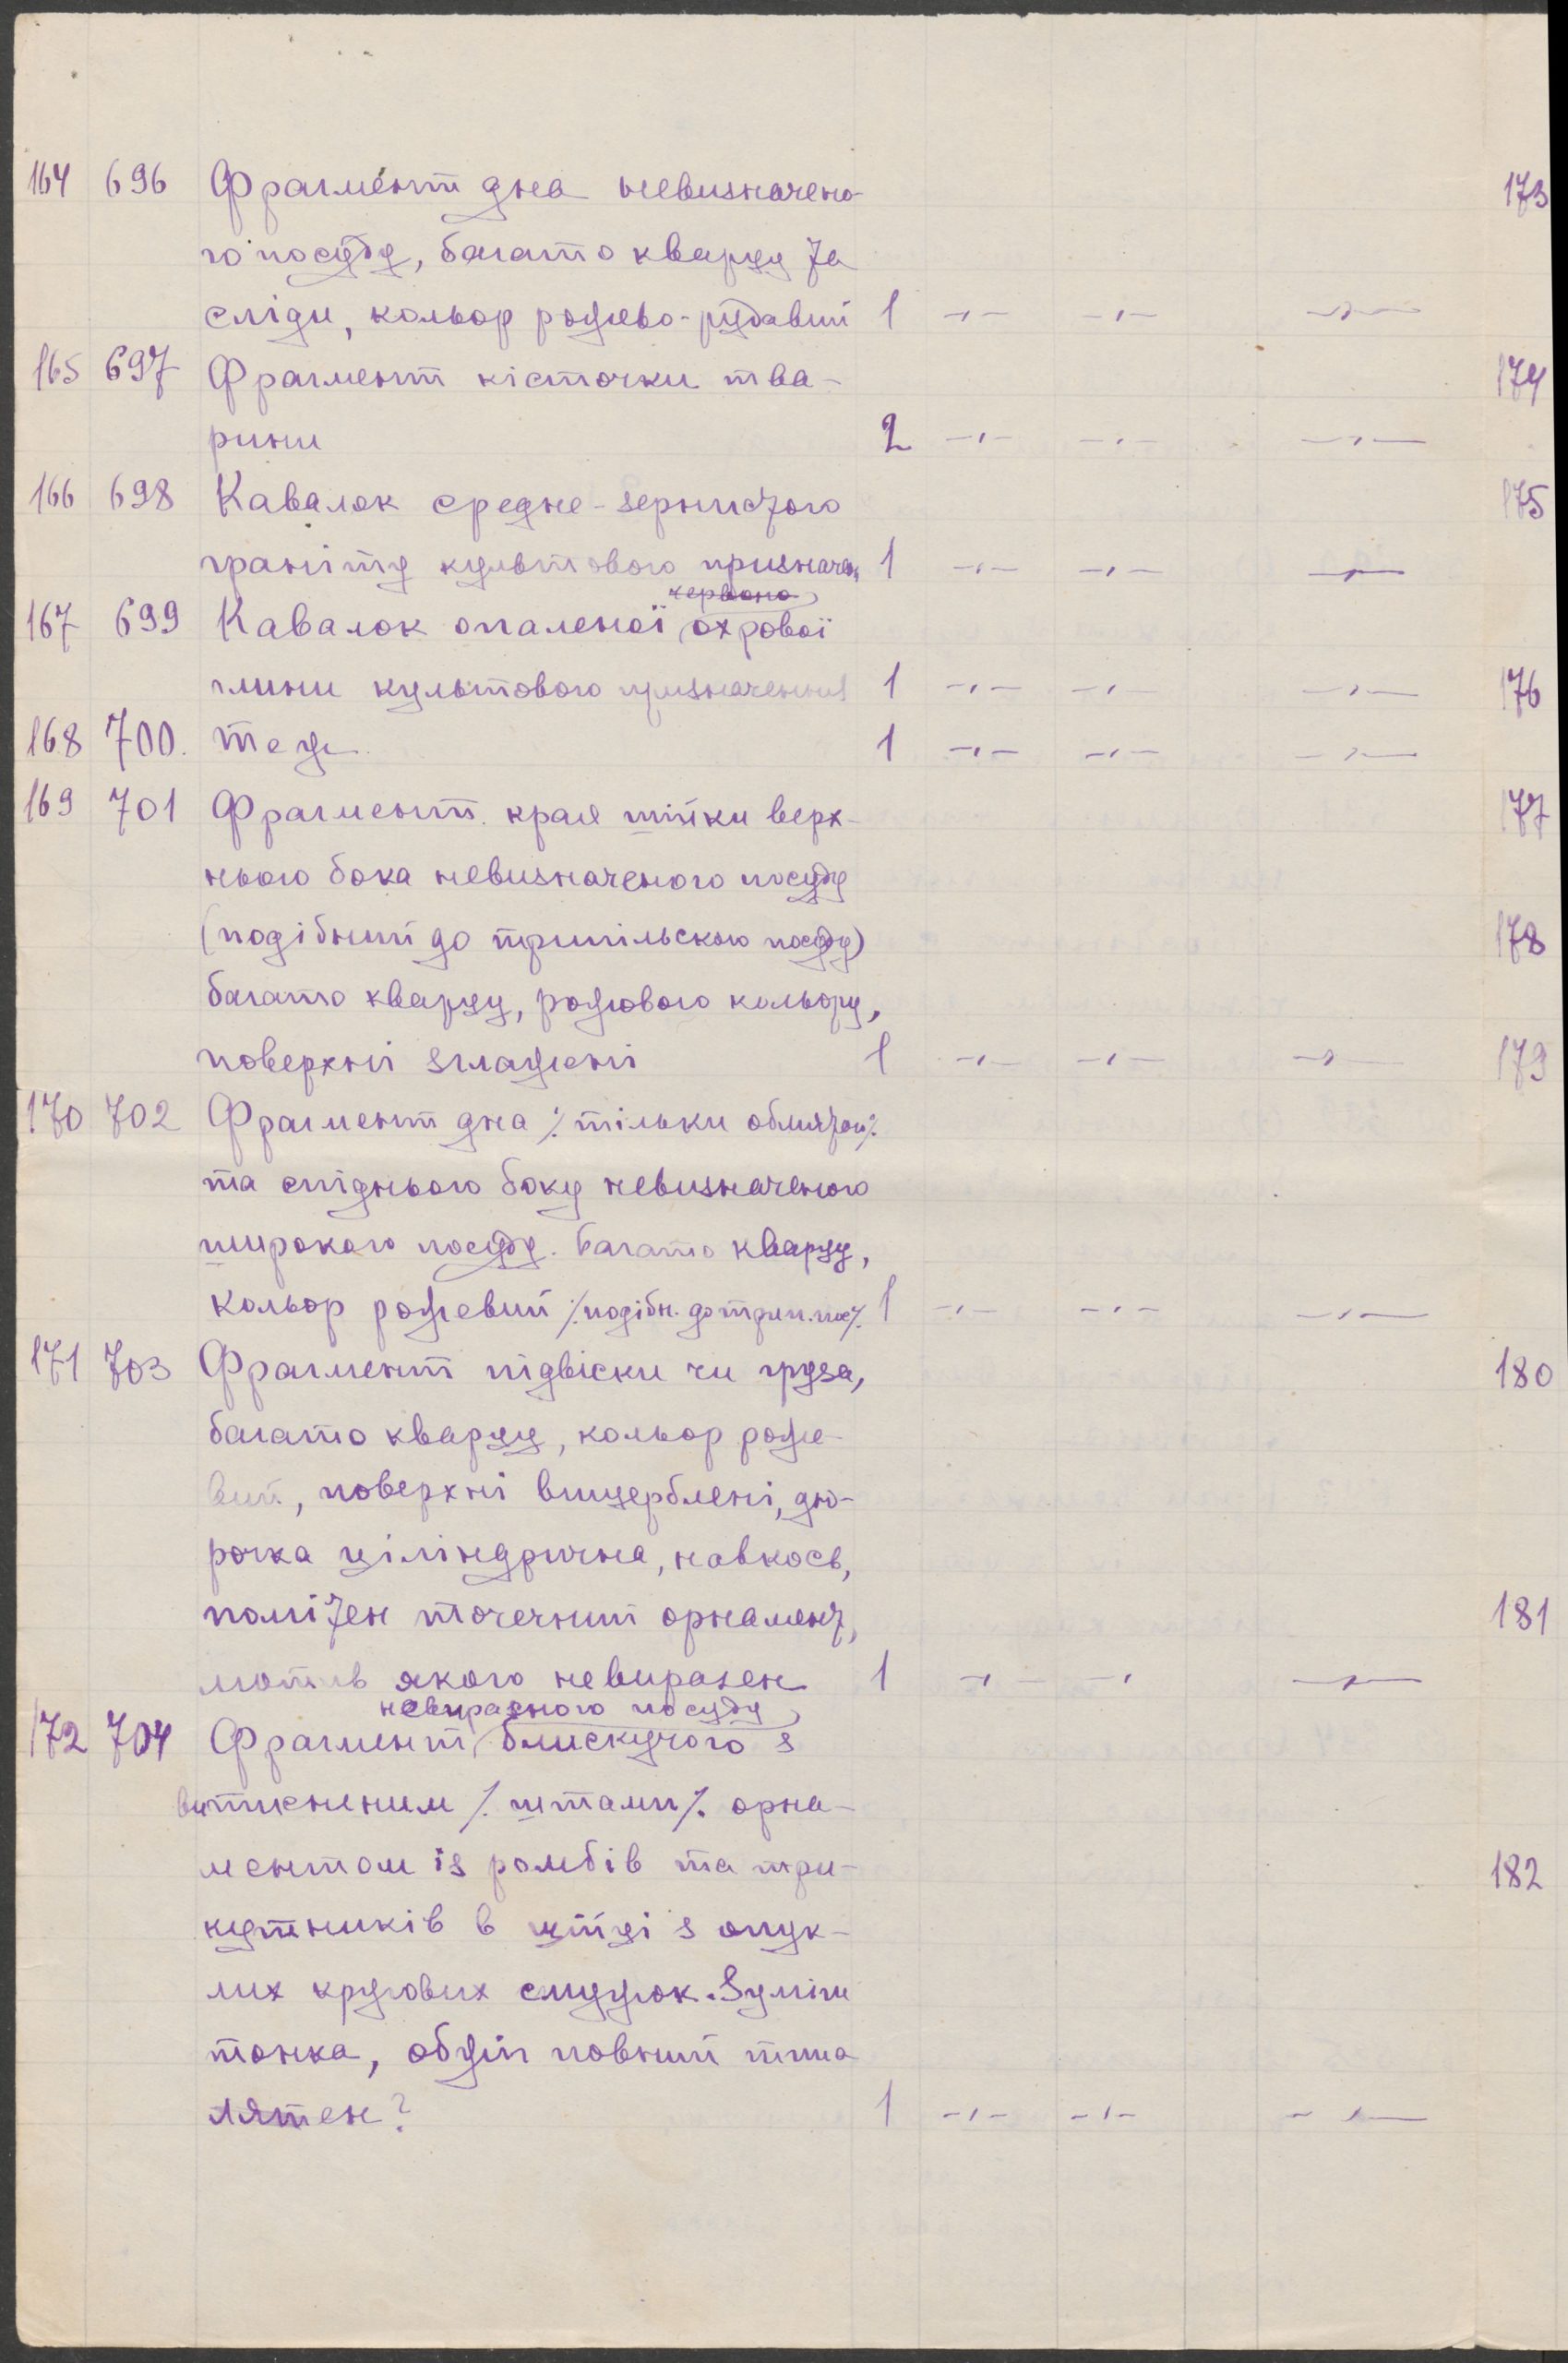 164 696 Фрагмент дна невизначено- 173
го посуду, багато кварцу та
сліди, кольор рожево-рудавий 1 -"- -"- -"-
165 697 Фрагмент кісточки тва- 174
рини 2 -"- -"- -"-
166 698 Кавалок средне-зернистого 175
граніту культового призначен. 1 -"- -"- -"-
червоно
167 699 Кавалок опаленої охрової
глини культового призначення 1 -"- -"- -"- 176
168 700. теж 1 -"- -"- -"-
169 701 Фрагмент края шийки верх- 177
нього бока невизначеного посуду
(подібний до трипільского посуду) 178
багато кварцу, рожового кольору,
поверхні зглажені 1 -"- -"- -"- 179
170 702 Фрагмент дна ⁒ тільки ⁒
та спіднього боку невизначеного
широкого посуду. багато кварцу,
кольор рожевий ⁒ подібн. до трип. пос ⁒ 1 -"- -"- -"-
171 703 Фрагмент підвіски чи груза, 180
багато кварцу, кольор роже-
вий, поверхні вищерблені, дю-
рочка циліндрична, навкось,
помітен точечний орнамент, 181
мотив якого невиразен 1 -"- -"- -"-
невиразного посуду
172 704 Фрагмент блискучого з
витисненим ⁒ штамп ⁒ орна-
ментом із ромбів та три- 182
кутників в шийці з опук-
лих кругових смужок. Суміш
тонка, обжіг повний типа
лятен? 1 -"- -"- -"-